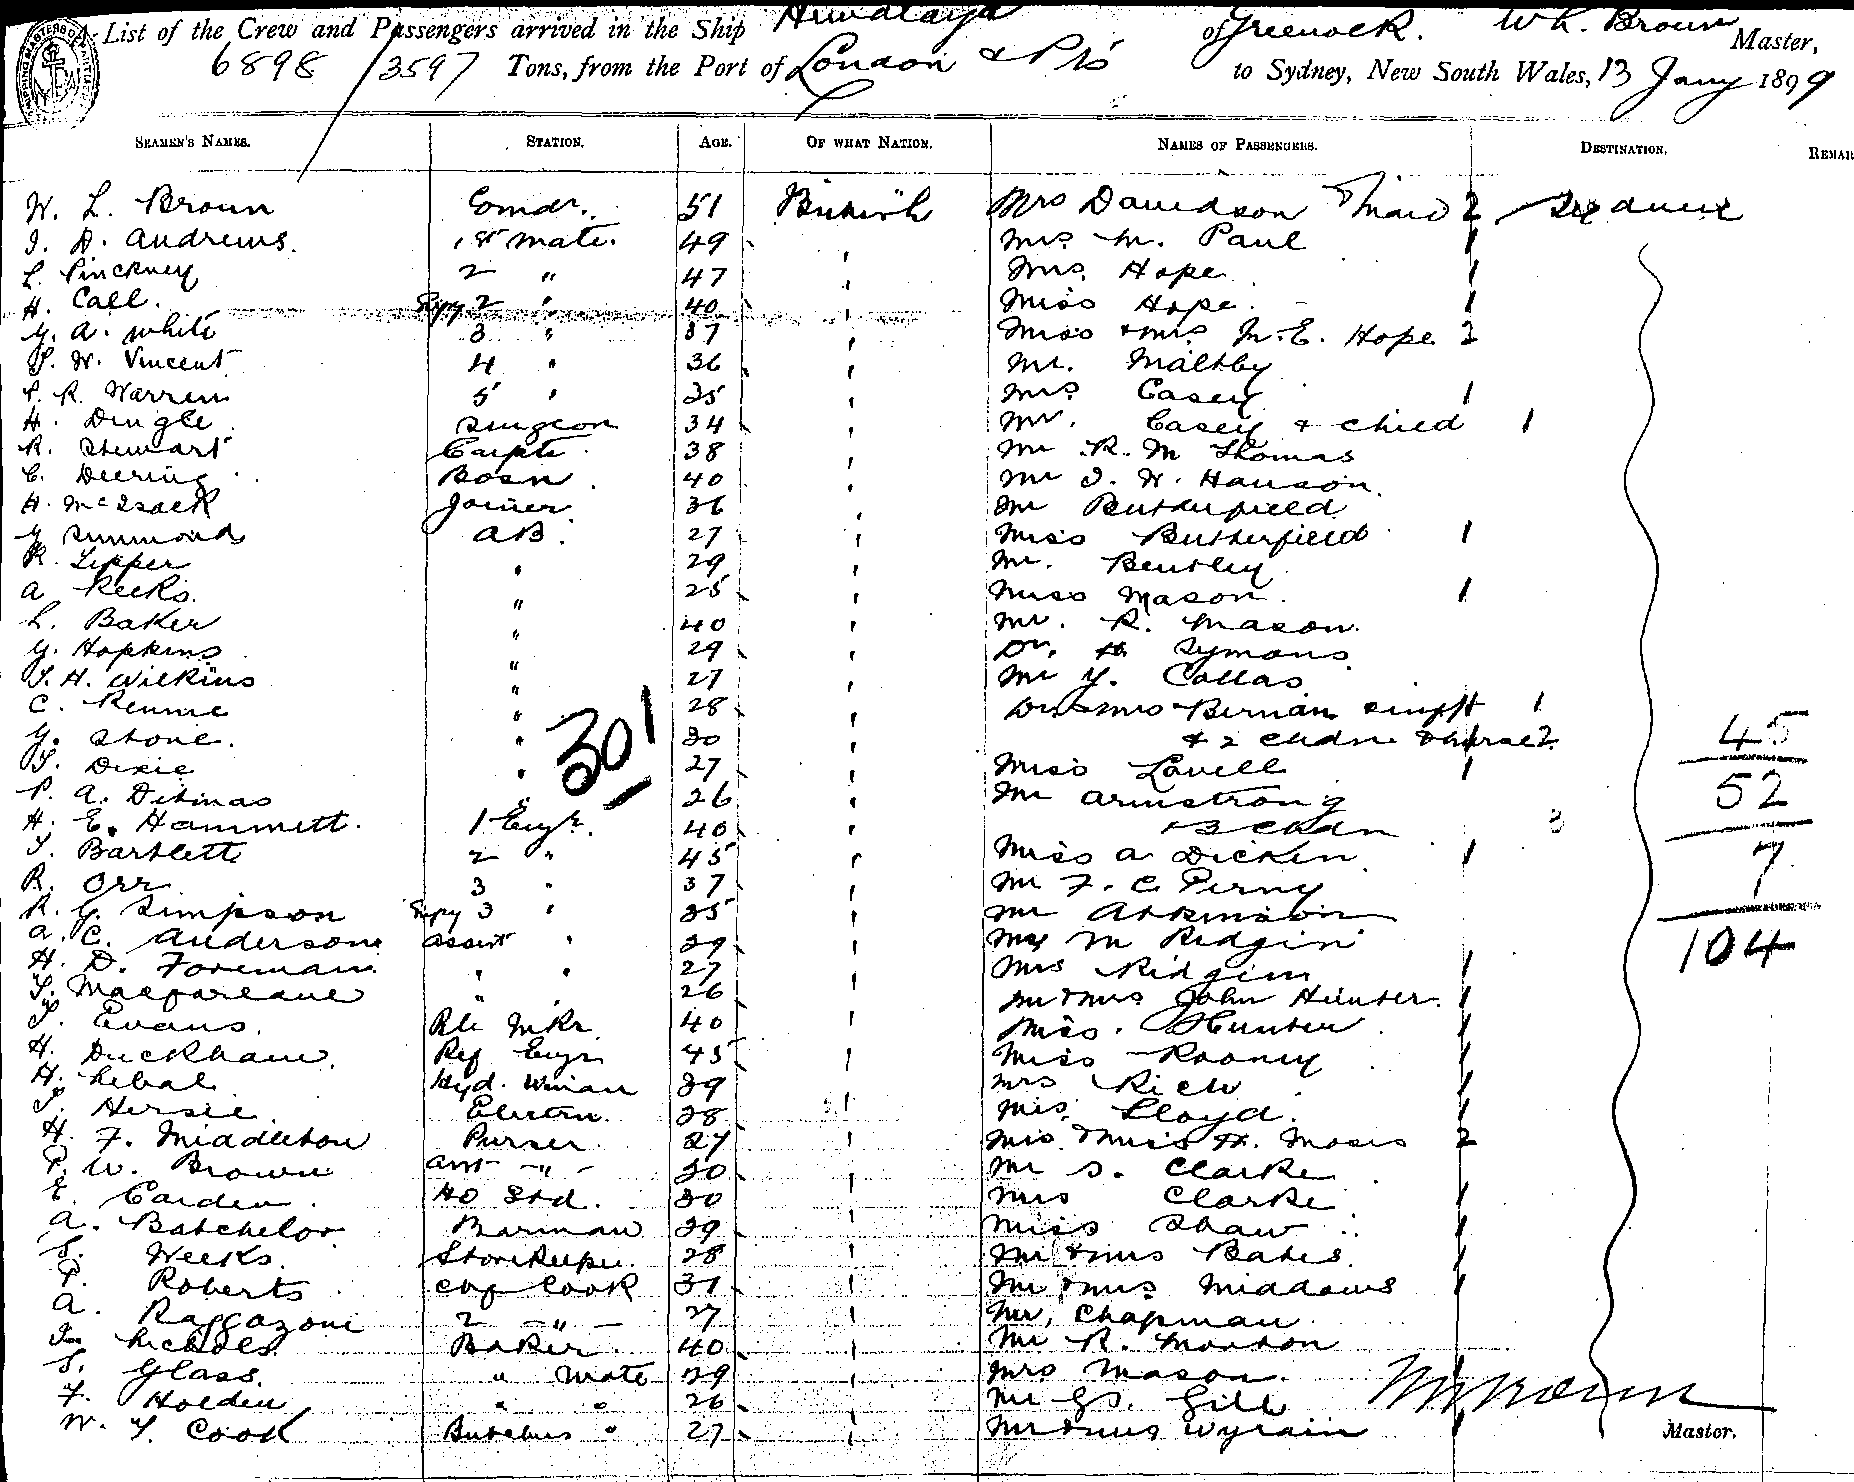 List of the Crew and Passengers arrived in the Ship Himalaya of Greenock. W L. Broun Master,
6898 / 3597 Tons, from the Port of London & Pts to Sydney, New South Wales, 13 Jany 1899
SEAMEN'S NAMES. STATION. AGE. OF WHAT NATION. NAMES OF PASSENGERS. DESTINATION. REMAR
W. L. Broun Comdr. 51 British Mrs Davidson & maid 2
J. D. Andrews. 1st mate. 49 Mrs M. Paul 1
L. Pinckney 2 " 47 Mrs Hope 1
H. Call. Supy 2 " 40 Miss Hope. 1
G. A. White 3 " 37 Miss & Mrs M. E. Hope 2
S. W. Vincent 4 " 36 Mr. Maltby
S. R. Warren 5 " 35 Mrs Casey 1
H. Dingle Surgeon 34 Mr. Casey & child 1
R. Stewart Carptr 38 Mr R. M Thomas
C. Deering Bosn. 40 Mr J. W. Hanson.
H. McIsack Joiner 36 Mr Butterfield
G Simmond AB. 27 Miss Butterfield 1
R. Tipper " 29 Mr. Bentley
A Reeks. " 25 Miss Mason. 1
L. Baker " 40 Mr. R. Mason.
G. Hopkins " 29 Dr. H. Symons.
S. H. Wilkins " 27 Mr Y. Collas
C. Rennie " 28 Dr & Mrs Bernau 1
G. Stone. " 30 & 2 chdn & nurse 2 45
S. Dixie " 27 Miss Lovell 1
P. A. Ditmas " 26 Mr Armstrong 52
H. E. Hammett. 1 Engr. 40 & 3 chdn 3
T. Bartlett 2 " 45 Miss A Dicken 1 7
R. Orr 3 " 37 Mr F. C. Perny
R. G. Simpson Supy 3 " 35 Mr Atkinson
A. C. Anderson Assist " 29 M Ridgin 104
H. D. Foreman " " 27 Mrs Ridgin 1
S. Macfarlane " " 26 Mr & Mrs John Hunter. 1
Evans. Blr Mkr. 40 Miss. Hunter 1
H. Duckham. Ref Engr 45 Miss Rooney 1
H. Lebal Hyd. Winman 39 Mrs Rich 1
Hersie. Electrn. 38 Mrs Lloyd. 1
H. F. Middleton Purser 27 Mrs & Miss H. Moses 2
P. W. Brown Asst -"- 30 Mr S. Clarke
E. Carden Hd Std. 30 Mrs Clarke 1
A. Batchelor Barman 29 Miss Shaw 1
S. Weeks. Storekeeper 28 Mr & Mrs Bates. 1
P. Roberts Cook 31 Mr & Mrs Middows 1
A. Raggazoni 2 -"- 27 Mr. Chapman
Baker 40 Mr R. Morton
S. Glass. " Mate 29 Mrs Mason. 1
F. Holden " " 26 Mr Gill
W. Y. Cook Butchers " 27 Mr & Mrs Wyrain 1
301
Master.